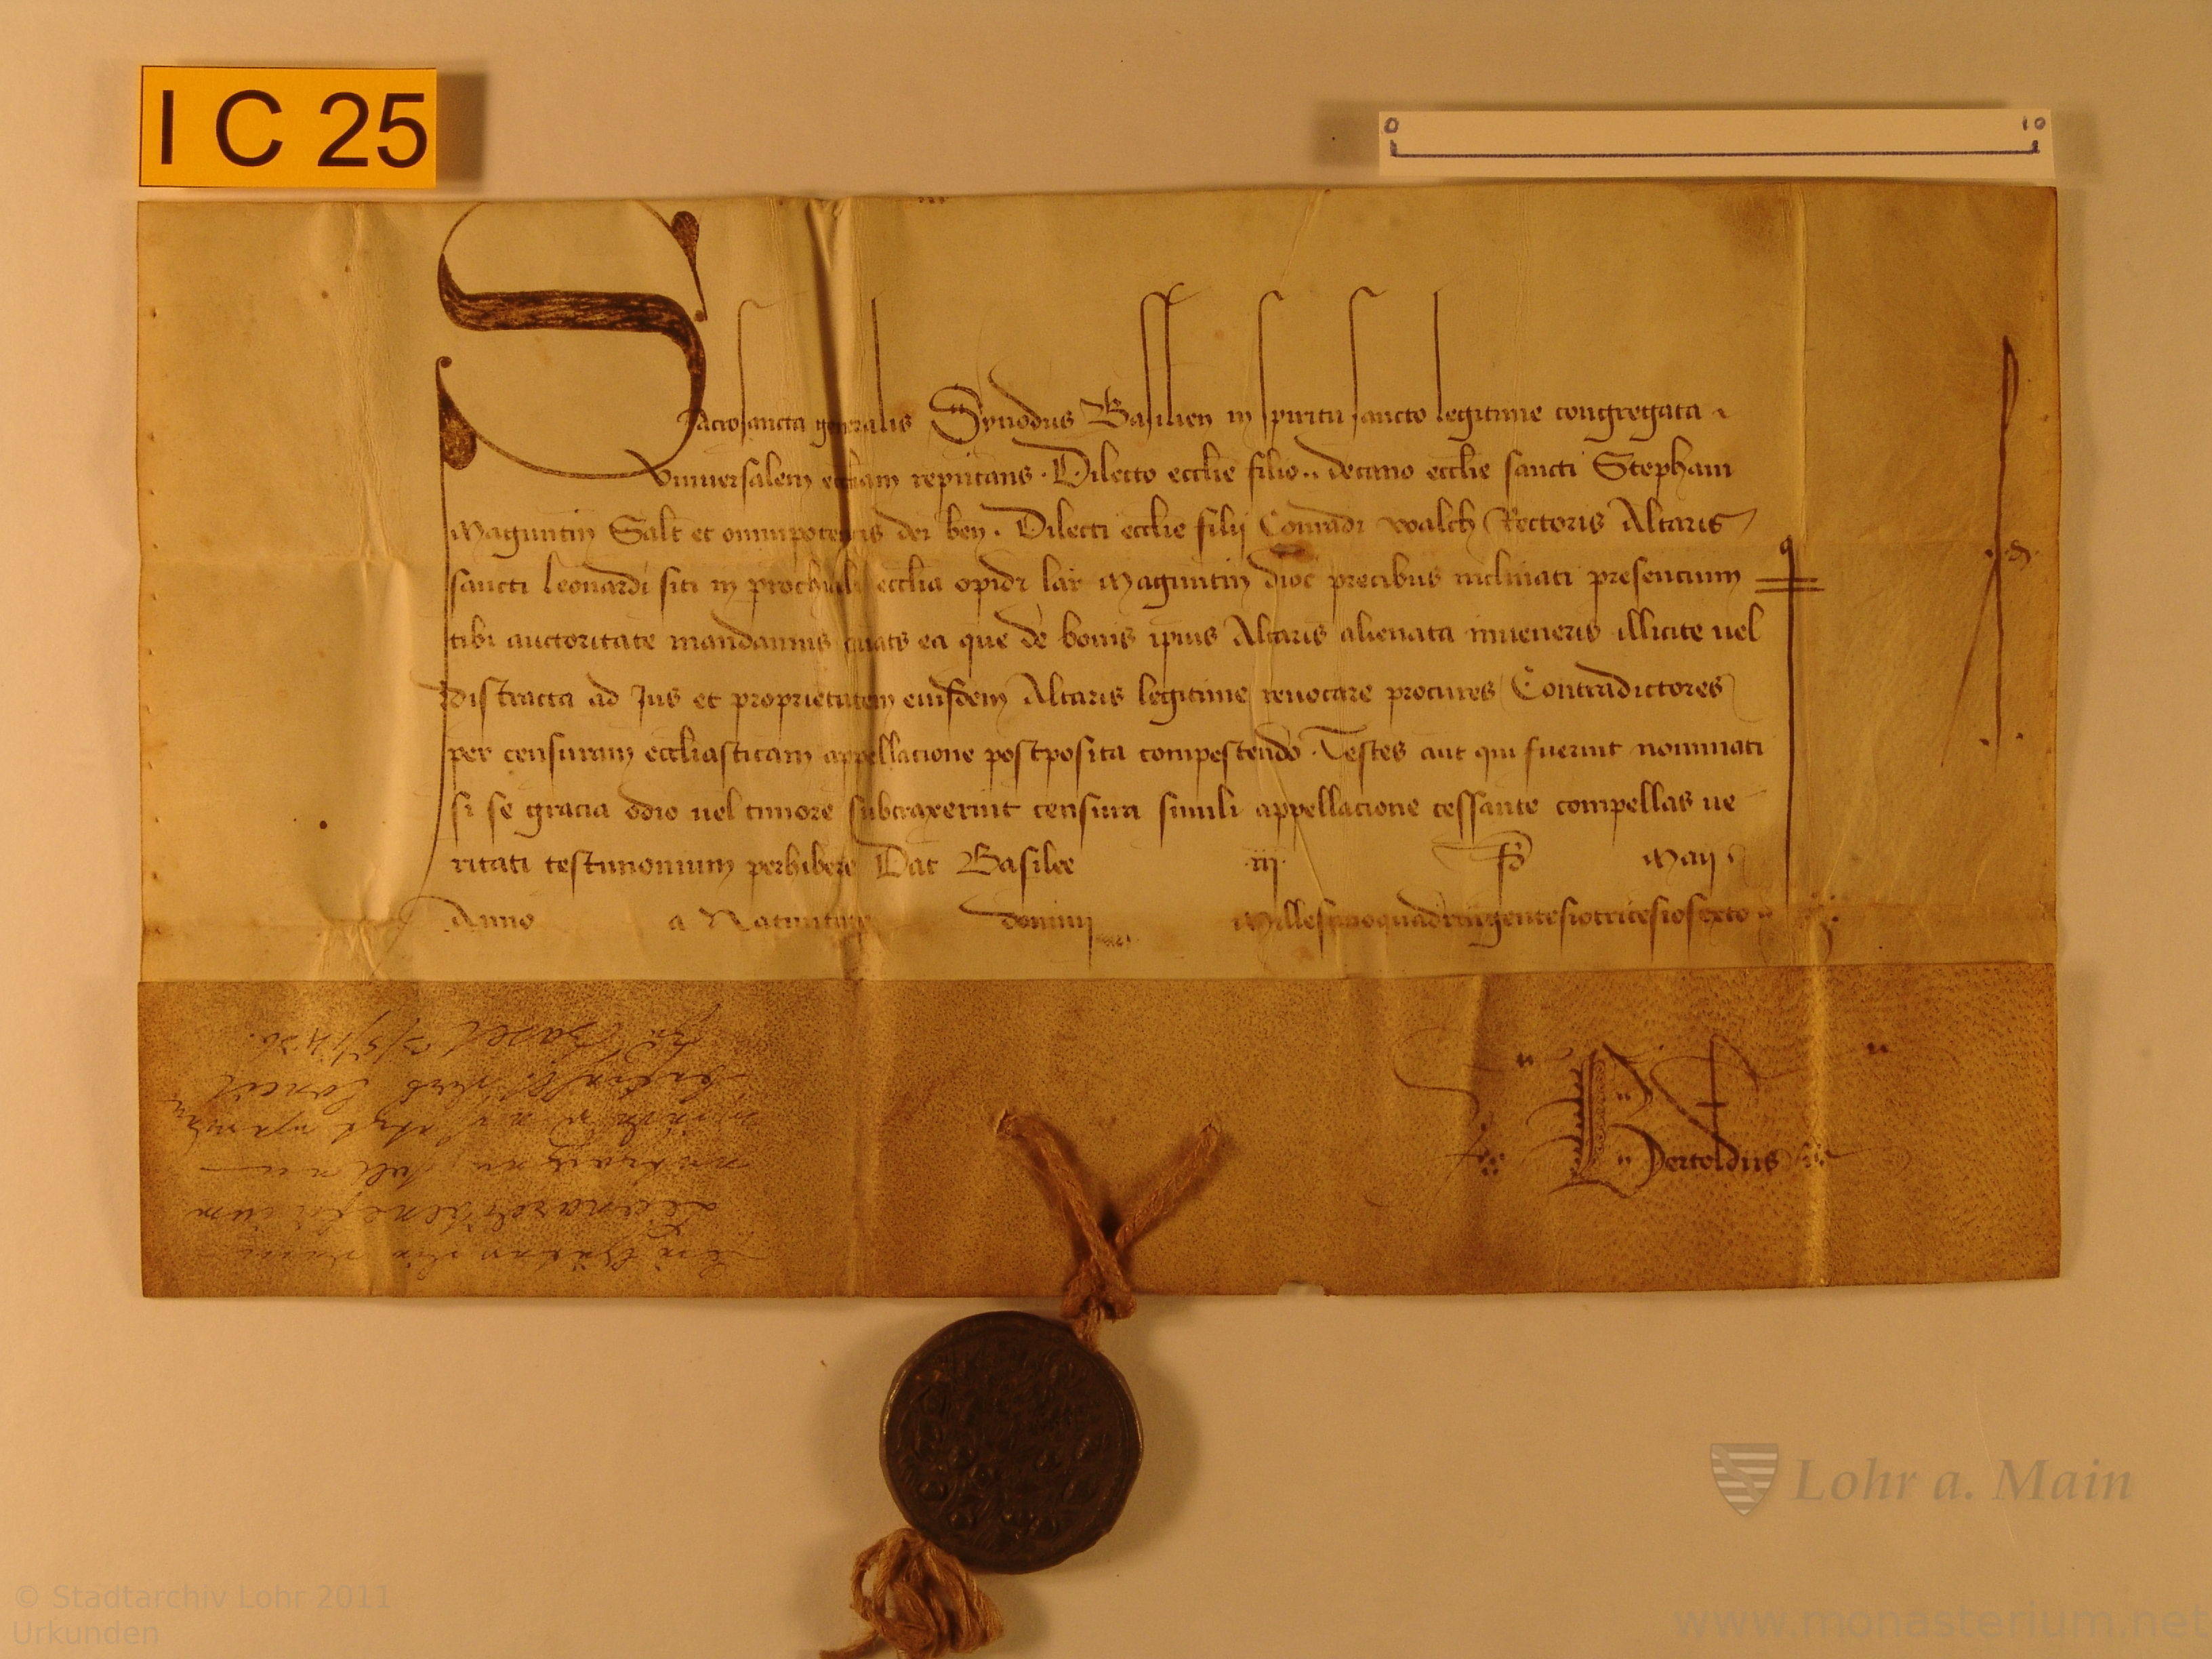 I C 25
0 10
Sacrosancta generalis Synodus Basilien in spiritu sancto legitime congregata
vniuersalem eccliam reputans. Dilecto ecclie filio .. decano ecclie sancti Stephani
Maguntin Salt et omnipotentis dei ben. Dilecti ecclie filij Conradi walch Rectoris Altaris
sancti leonardi siti in prochiali ecclia opidi lar Maguntin dioc precibus inclinati presencium
tibi auctoritate mandamus quats ea que de bonis ipius Altaris alienata inueneris illicite uel
distracta ad Jus et proprietatem eiusdem Altaris legitime reuocare procures Contradictores
per censuram eccliasticam appellacione postposita compescendo. Testes aut qui fuerint nominati
si se gracia odio uel timore subtraxerint censura simili appellacione cessante compellas ue
ritati testimonium perhibere Dat Basilee iij Maij
Anno a Natiuitate domini Millesimoquadringentesiotricesiosexto
Bertoldus
Lohr a. Main
© Stadtarchiv Lohr 2011
Urkunden
www.monasterium.net